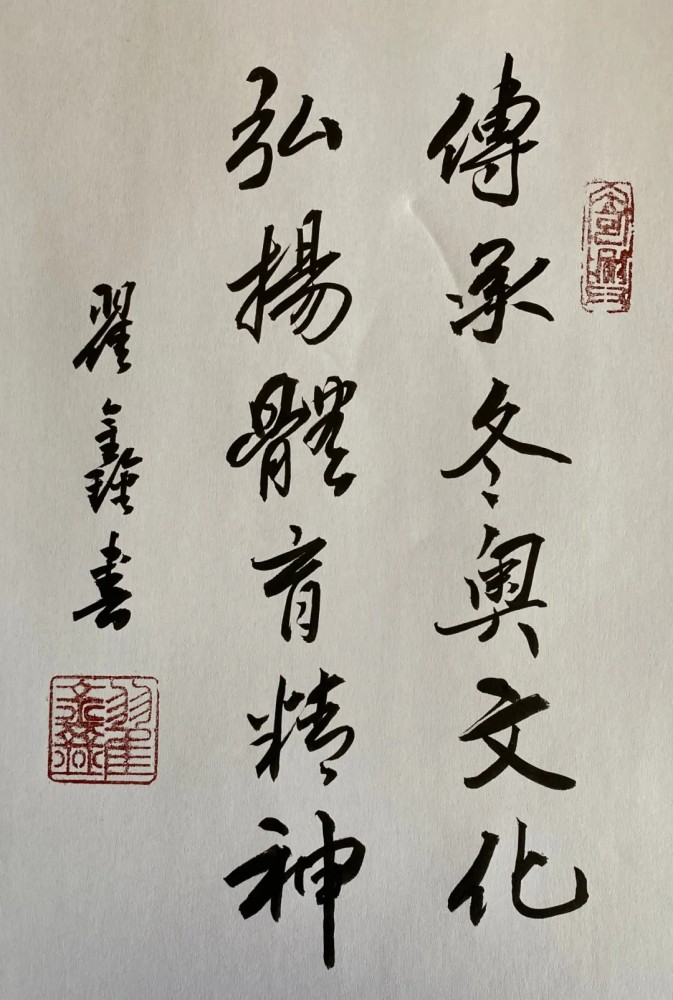 傳承冬奧文化
弘揚體育精神
翟鑫書